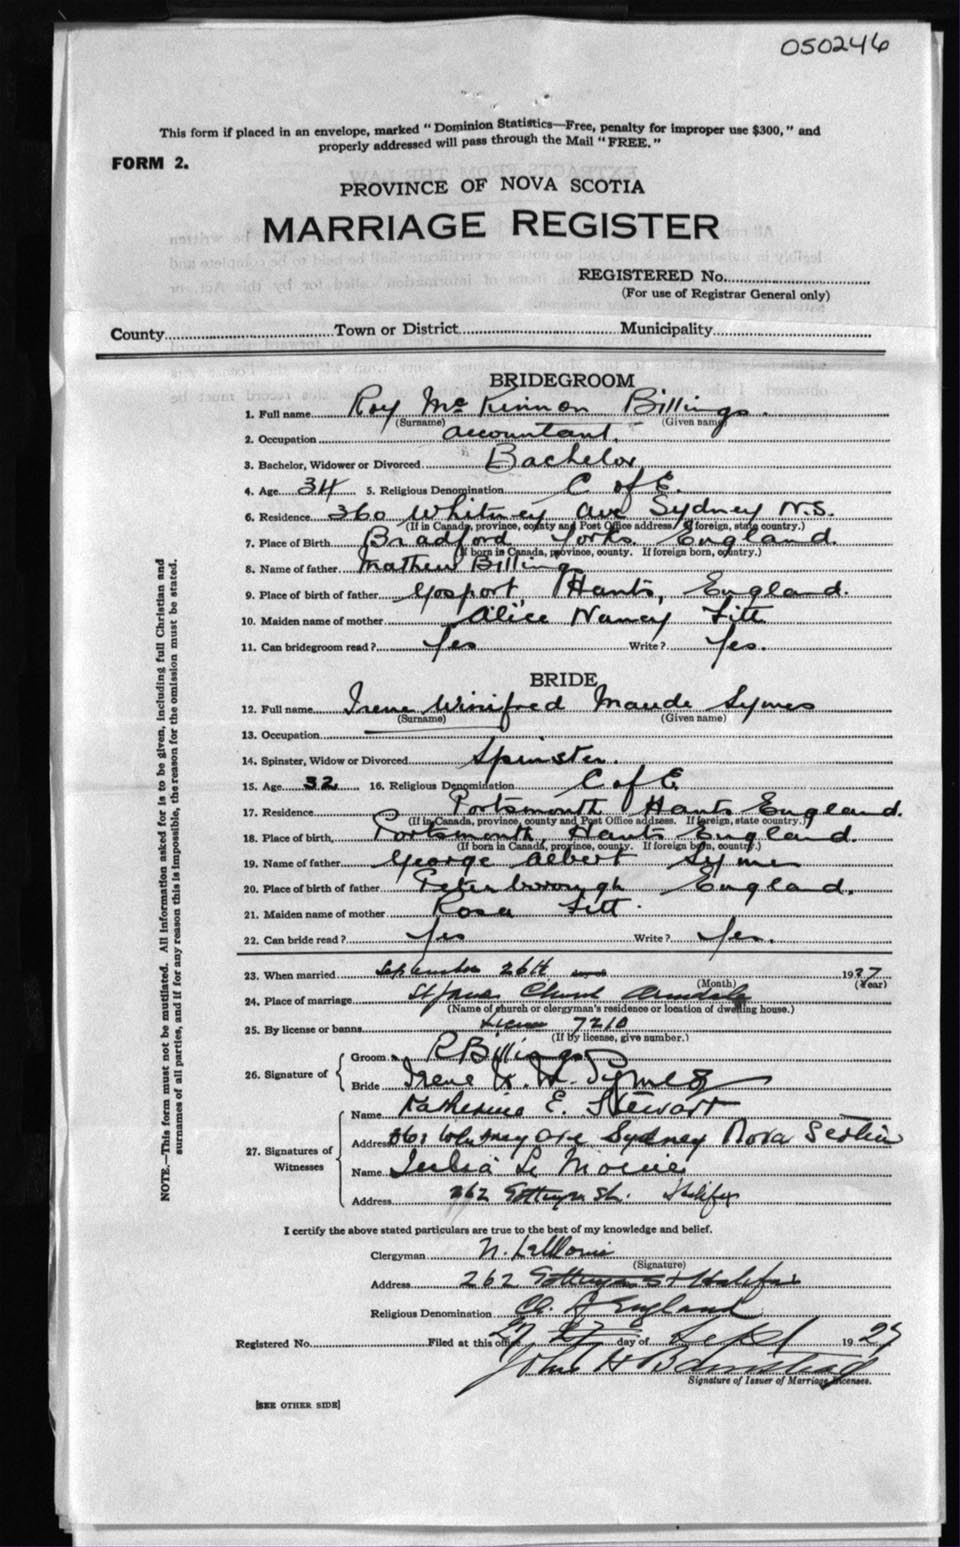 050246
This form if placed in an envelope, marked "Dominion Statistics—Free, penalty for improper use $300," and
properly addressed will pass through the Mail "FREE."
FORM 2.
PROVINCE OF NOVA SCOTIA
MARRIAGE REGISTER
REGISTERED No.
(For use of Registrar General only)
County Town or District Municipality
BRIDEGROOM
1. Full name Roy McKinnon Billings.
(Surname) (Given name)
2. Occupation accountant.
3. Bachelor, Widower or Divorced Bachelor
4. Age 34 5. Religious Denomination C of E.
6. Residence 360 Whitney Ave Sydney N.S.
(If in Canada, province, county and Post Office address. If foreign, state country.)
7. Place of Birth Bradford Yorks. England.
(If born in Canada, province, county. If foreign born, country.)
8. Name of father Mathew Billings
9. Place of birth of father Gosport, Hants, England.
10. Maiden name of mother Alice Nancy Fitt
11. Can bridegroom read? Yes Write? Yes.
BRIDE
12. Full name Irene Winifred Maude Symes
(Surname) (Given name)
13. Occupation
14. Spinster, Widow or Divorced Spinster.
15. Age 32 16. Religious Denomination C of E
17. Residence Portsmouth Hants England.
(If in Canada, province, county and Post Office address. If foreign, state country.)
18. Place of birth, Portsmouth, Hants England.
(If born in Canada, province, county. If foreign born, country.)
19. Name of father George Albert Symes
20. Place of birth of father Peterborough England.
21. Maiden name of mother Rosa Fitt.
22. Can bride read? Yes Write? Yes.
23. When married September 26th 1927
(Month) (Year)
24. Place of marriage St James Church Armdale
(Name of church or clergyman's residence or location of dwelling house.)
25. By license or banns License 7210
(If by license, give number.)
26. Signature of
Groom R Billings
Bride Irene W. M. Symes
27. Signatures of Witnesses
Name Katherine E. Stewart
Address 361 Whitney Ave Sydney Nova Scotia
Name
Address 262 Gottingen St. Halifax
I certify the above stated particulars are true to the best of my knowledge and belief.
Clergyman N. LeMoine
(Signature)
Address 262 Gottingen St Halifax
Religious Denomination Ch. of England
Registered No. Filed at this office 27 27 day of Sept 1927
John H
Signature of Issuer of Marriage Licenses.
[SEE OTHER SIDE]
NOTE.—This form must not be mutilated. All information asked for is to be given, including full Christian and
surnames of all parties, and if for any reason this is impossible, the reason for the omission must be stated.